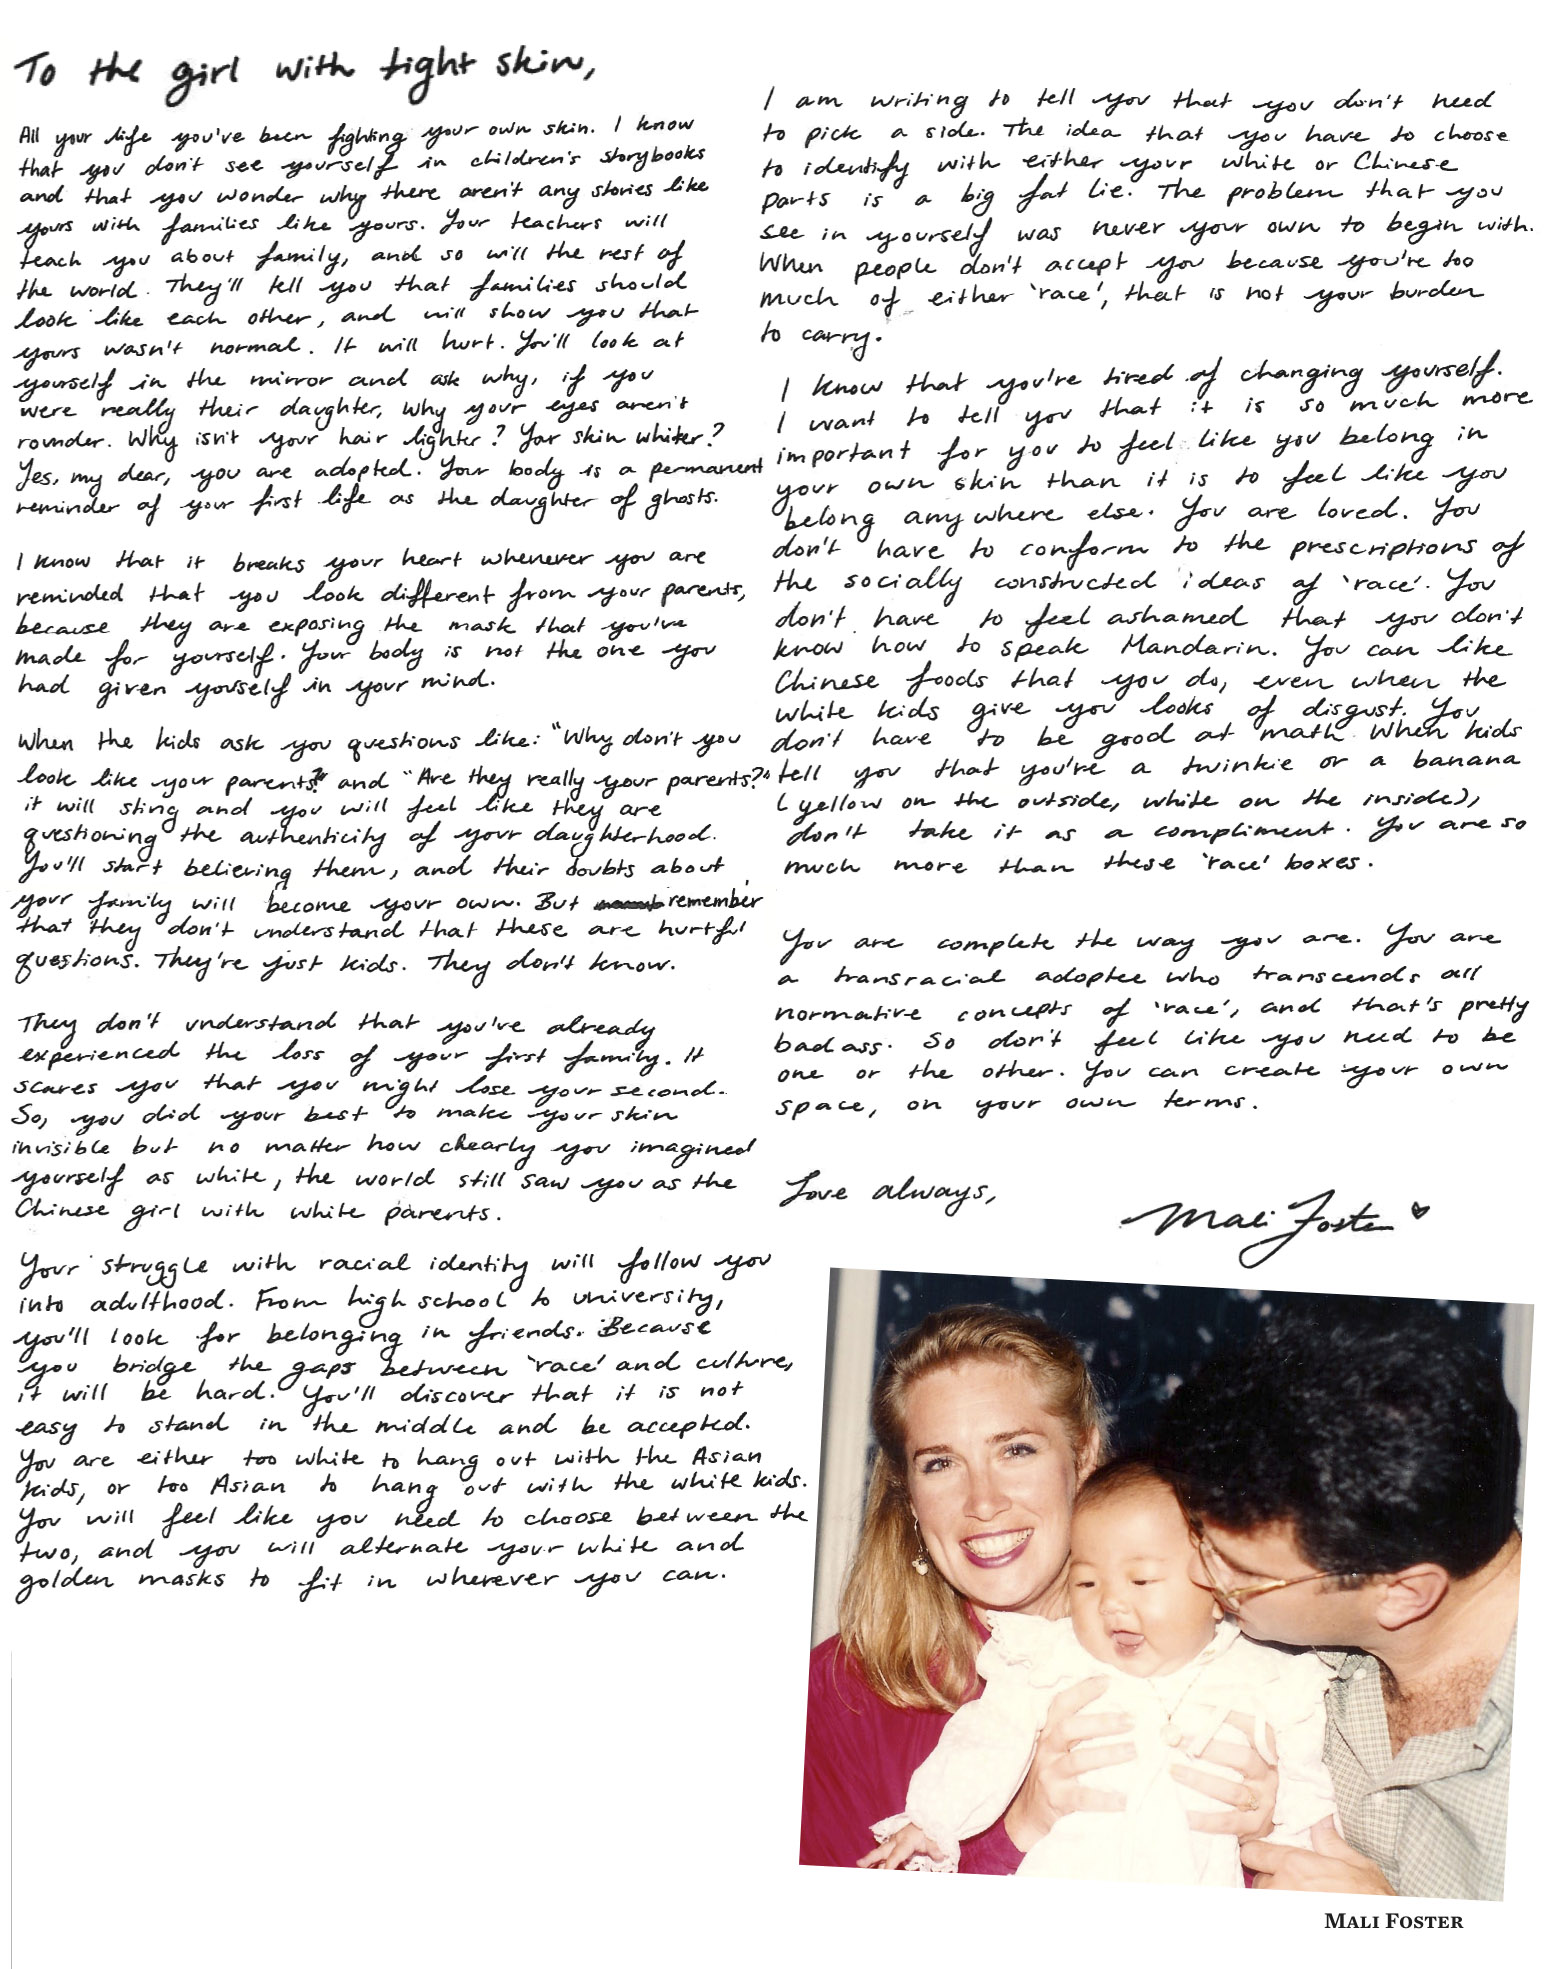 To the girl with tight skin,
All your life you've been fighting your own skin. I know
that you don't see yourself in children's storybooks
and that you wonder why there aren't any stories like
yours with families like yours. Your teachers will
teach you about family, and so will the rest of
the world. They'll tell you that families should
look like each other, and will show you that
yours wasn't normal. It will hurt. You'll look at
yourself in the mirror and ask why, if you
were really their daughter, why your eyes aren't
rounder. Why isn't your hair lighter? Yor skin whiter?
Yes, my dear, you are adopted. Your body is a permanent
reminder of your first life as the daughter of ghosts.
I know that it breaks your heart whenever you are
reminded that you look different from your parents,
because they are exposing the mask that you've
made for yourself. Your body is not the one you
had given yourself in your mind.
When the kids ask you questions like: "Why don't you
look like your parents?" and "Are they really your parents?"
it will sting and you will feel like they are
questioning the authenticity of your daughterhood.
You'll start believing them, and their doubts about
your family will become your own. But remember
that they don't understand that these are hurtful
questions. They're just kids. They don't know.
They don't understand that you've already
experienced the loss of your first family. It
scares you that you might lose your second.
So, you did your best to make your skin
invisible but no matter how clearly you imagined
yourself as white, the world still saw you as the
Chinese girl with white parents.
Your struggle with racial identity will follow you
into adulthood. From high school to university,
you'll look for belonging in friends. Because
you bridge the gaps between 'race' and culture,
it will be hard. You'll discover that it is not
easy to stand in the middle and be accepted.
You are either too white to hang out with the Asian
kids, or too Asian to hang out with the white kids.
You will feel like you need to choose between the
two, and you will alternate your white and
golden masks to fit in wherever you can.
I am writing to tell you that you don't need
to pick a side. The idea that you have to choose
to identify with either your white or Chinese
parts is a big fat lie. The problem that you
see in yourself was never your own to begin with.
When people don't accept you because you're too
much of either 'race', that is not your burden
to carry.
I know that you're tired of changing yourself.
I want to tell you that it is so much more
important for you to feel like you belong in
your own skin than it is to feel like you
belong anywhere else. You are loved. You
don't have to conform to the prescriptions of
the socially constructed ideas of 'race'. You
don't have to feel ashamed that you don't
know how to speak Mandarin. You can like
Chinese foods that you do, even when the
white kids give you looks of disgust. You
don't have to be good at math. When kids
tell you that you're a twinkie or a banana
(yellow on the outside, white on the inside),
don't take it as a compliment. You are so
much more than these 'race' boxes.
You are complete the way you are. You are
a transracial adoptee who transcends all
normative concepts of 'race', and that's pretty
badass. So don't feel like you need to be
one or the other. You can create your own
space, on your own terms.
Love always,
Mali Foster
MALI FOSTER